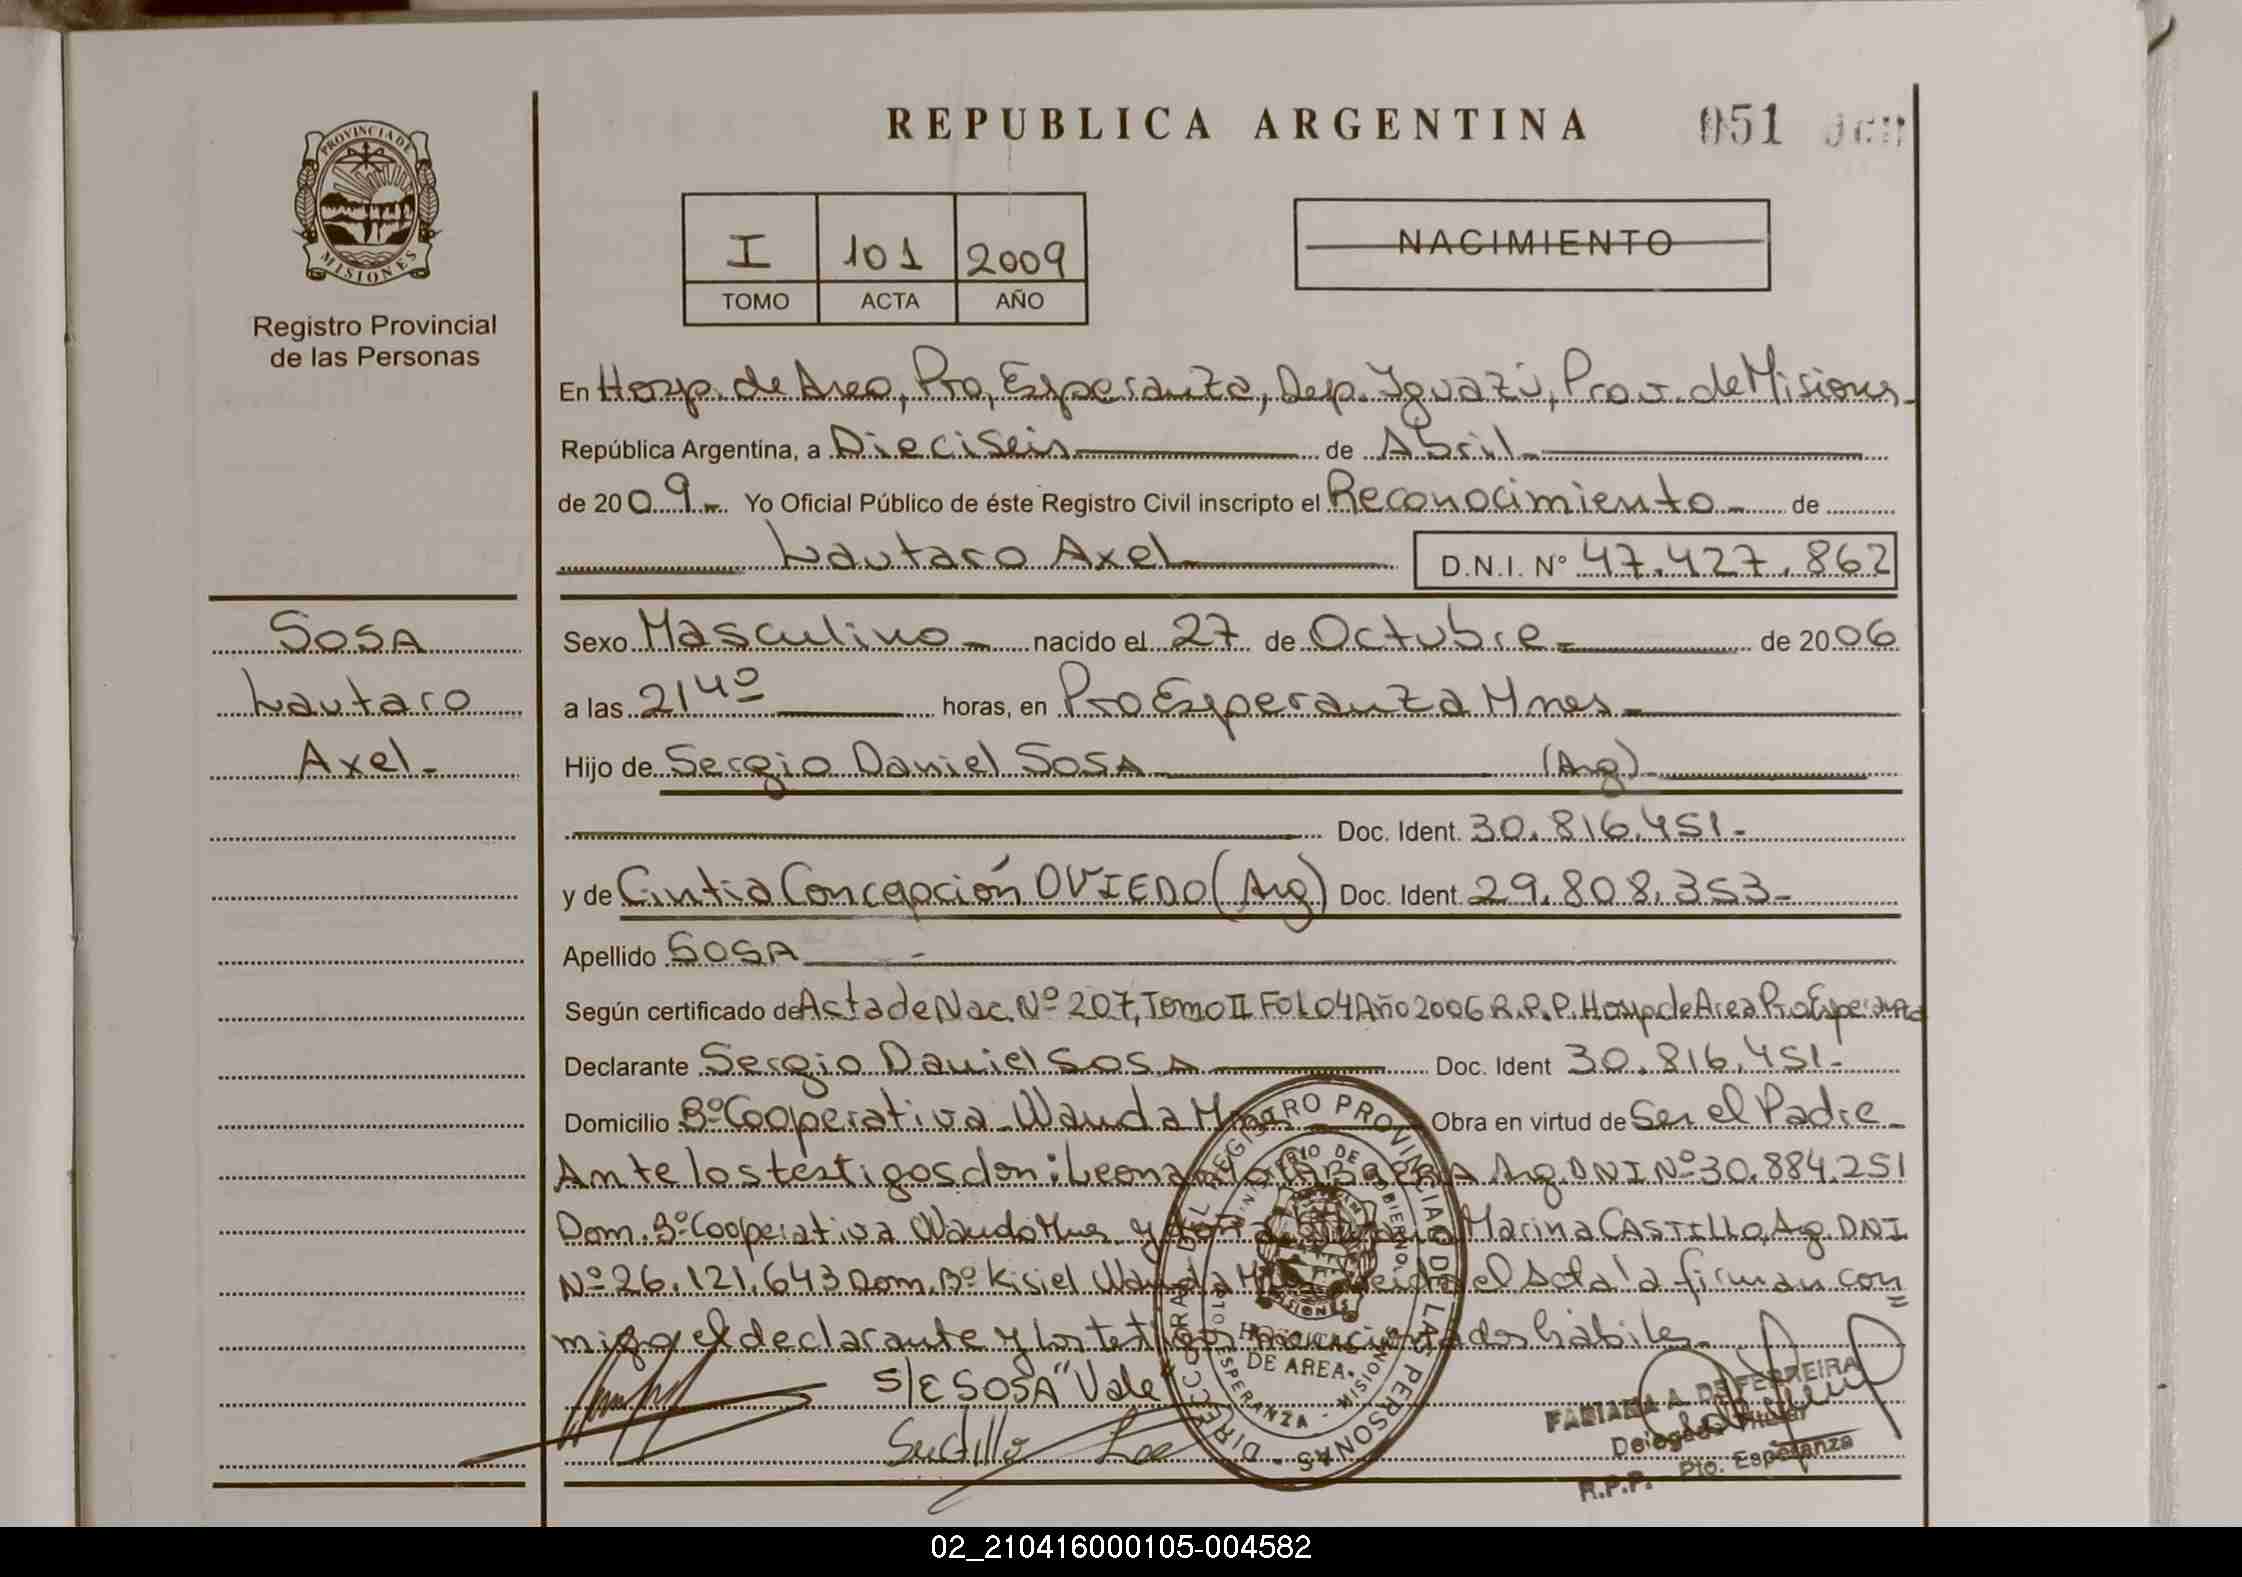 REPUBLICA ARGENTINA
051
PROVINCIA DE
MISIONES
Registro Provincial
de las Personas
I 101 2009
TOMO ACTA AÑO
NACIMIENTO
En Hosp. de Area, Pto, Esperanza, Dep. Iguazú, Prov. de Misiones.
República Argentina, a Dieciseis de Abril
de 2009.- Yo Oficial Público de éste Registro Civil inscripto el Reconocimiento de
Lautaro Axel D.N.I. N° 47.427.862
SOSA
Lautaro
Axel.
Sexo Masculino nacido el 27 de Octubre de 2006
a las 21 4º horas, en Pto Esperanza Mnes
Hijo de Sergio Daniel SOSA (Arg)
Doc. Ident. 30.816.451-
y de Cintia Concepción OVIEDO (Arg) Doc. Ident. 29.808.353-
Apellido SOSA
Según certificado de Acta de Nac. Nº 207, Tomo II Fol 04 Año 2006 R.P.P. Hosp de Area Pto Esperanza
Declarante Sergio Daniel SOSA Doc. Ident 30.816.451-
Domicilio Bº Cooperativa Wanda Mnes Obra en virtud de Ser el Padre
Ante los testigos don: Leonardo Arg. DNI Nº 30.884.251
Dom. Bº Cooperativa Wanda Mnes y doña Marina CASTILLO, Arg. DNI
Nº 26.121.643 Dom. Bº Kisiel Wanda Mnes Leida el Acta la firman con
migo el declarante y los testigos mencionados hábiles.
S/E SOSA "Vale"
DIRECCION GRAL. DEL REGISTRO PROVINCIAL DE LAS PERSONAS
MINISTERIO DE GOBIERNO
MISIONES
HOSPITAL
DE AREA
PTO. ESPERANZA - MISIONES
FABIANA A. DE FERREIRA
Delegada Titular
R.P.P. Pto. Esperanza
02_210416000105-004582